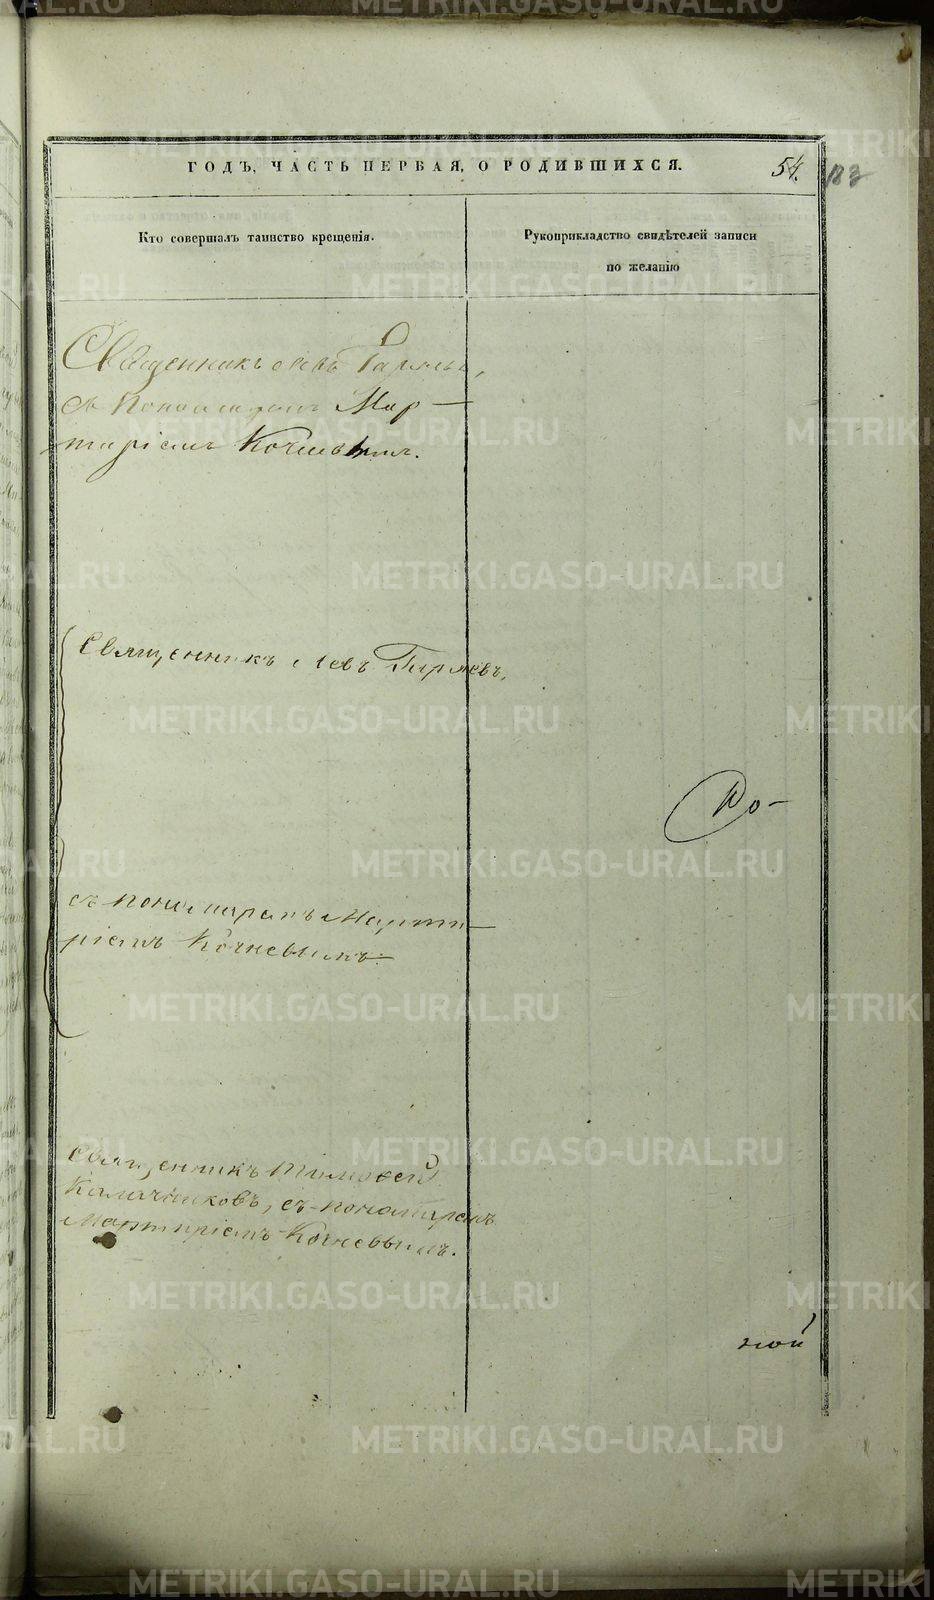 ГОДЪ, ЧАСТЬ ПЕРВАЯ, О РОДИВШИХСЯ.
54.
Кто совершалъ таинство крещенія.
Рукоприкладство свидѣтелей записи
по желанію
Священникъ Левъ Гиряевъ,
съ Пономаремъ Мар-
тиріемъ Кочневымъ.
Священникъ Левъ Гиряевъ,
съ пономаремъ Марти-
ріемъ Кочневымъ.
Священникъ Тимофей
съ пономаремъ
Мартиріемъ Кочневымъ.
ной
METRIKI.GASO-URAL.RU